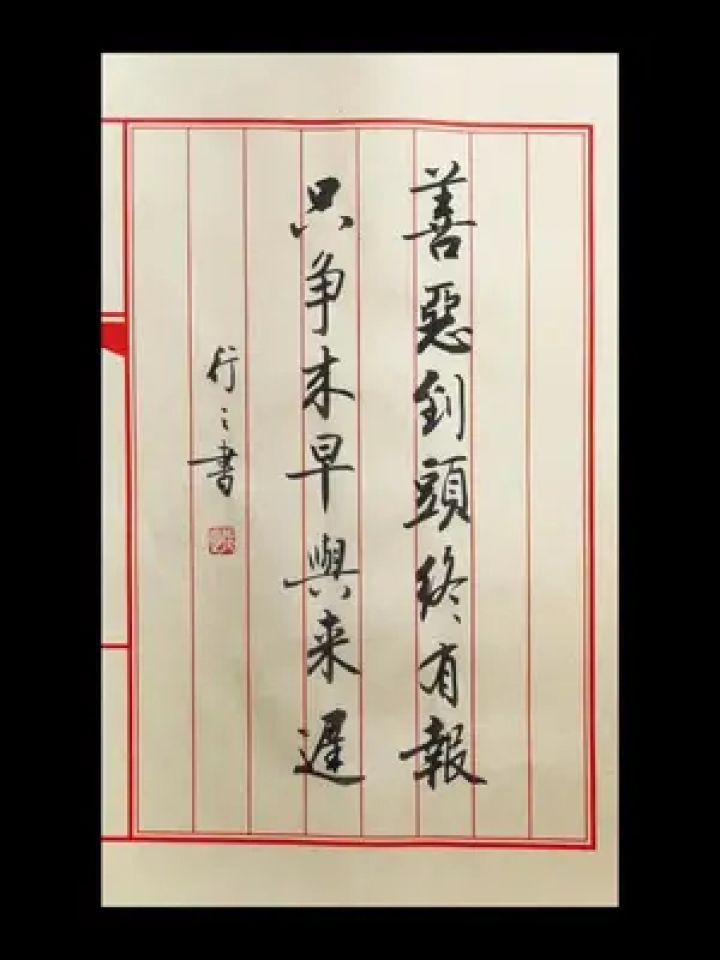 善惡到頭終有報
只争来早與来遲
行之書